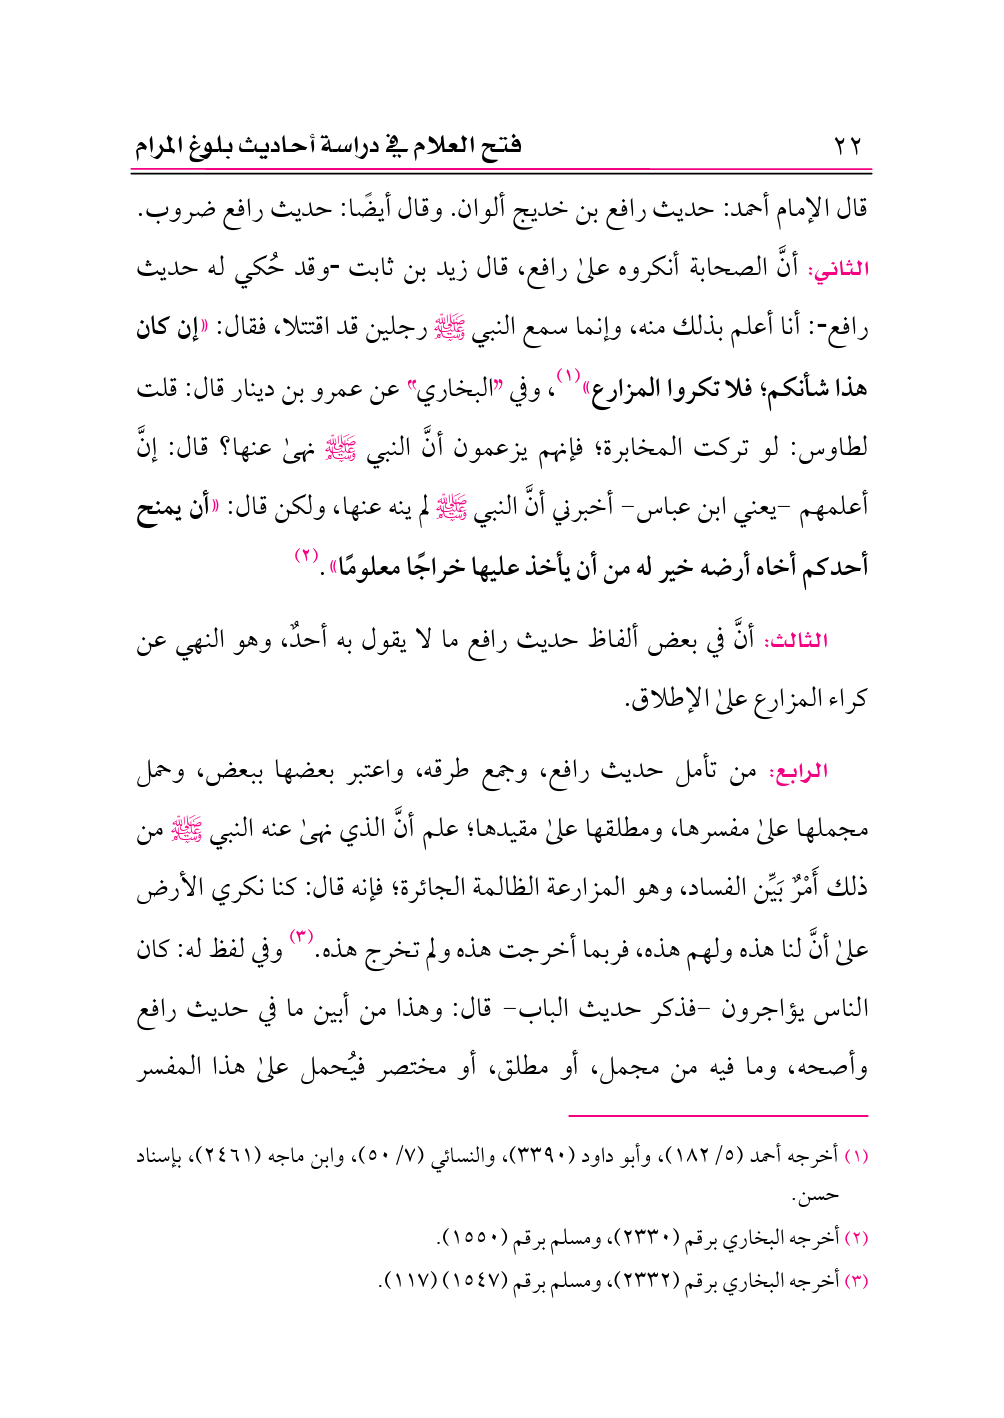 ٢٢ فتح العلام في دراسة أحاديث بلوغ المرام
قال الإمام أحمد: حديث رافع بن خديج ألوان. وقال أيضًا: حديث رافع ضروب.
الثاني: أنَّ الصحابة أنكروه علىٰ رافع، قال زيد بن ثابت -وقد حُكي له حديث
رافع-: أنا أعلم بذلك منه، وإنما سمع النبي ﷺ رجلين قد اقتتلا، فقال: «إن كان
هذا شأنكم؛ فلا تكروا المزارع»(١)، وفي "البخاري" عن عمرو بن دينار قال: قلت
لطاوس: لو تركت المخابرة؛ فإنهم يزعمون أنَّ النبي ﷺ نهىٰ عنها؟ قال: إنَّ
أعلمهم –يعني ابن عباس– أخبرني أنَّ النبي ﷺ لم ينه عنها، ولكن قال: «أن يمنح
أحدكم أخاه أرضه خير له من أن يأخذ عليها خراجًا معلومًا».(٢)
الثالث: أنَّ في بعض ألفاظ حديث رافع ما لا يقول به أحدٌ، وهو النهي عن
كراء المزارع علىٰ الإطلاق.
الرابع: من تأمل حديث رافع، وجمع طرقه، واعتبر بعضها ببعض، وحمل
مجملها علىٰ مفسرها، ومطلقها علىٰ مقيدها؛ علم أنَّ الذي نهىٰ عنه النبي ﷺ من
ذلك أَمْرٌ بَيِّن الفساد، وهو المزارعة الظالمة الجائرة؛ فإنه قال: كنا نكري الأرض
علىٰ أنَّ لنا هذه ولهم هذه، فربما أخرجت هذه ولم تخرج هذه.(٣) وفي لفظ له: كان
الناس يؤاجرون –فذكر حديث الباب– قال: وهذا من أبين ما في حديث رافع
وأصحه، وما فيه من مجمل، أو مطلق، أو مختصر فيُحمل علىٰ هذا المفسر
(١) أخرجه أحمد (٥/ ١٨٢)، وأبو داود (٣٣٩٠)، والنسائي (٧/ ٥٠)، وابن ماجه (٢٤٦١)، بإسناد
حسن.
(٢) أخرجه البخاري برقم (٢٣٣٠)، ومسلم برقم (١٥٥٠).
(٣) أخرجه البخاري برقم (٢٣٣٢)، ومسلم برقم (١٥٤٧) (١١٧).